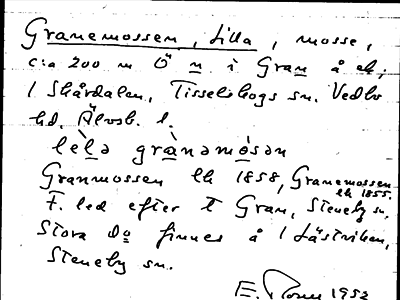 Granemossen, Lilla, mosse,
c:a 200 m Ö n. i Gran å ek,
/ Skårdalen, Tisselskogs sn. Vedbo
hd. Älvsb. l.
lèlə granəmòsən
Granmossen lk 1858, Granemossen
lk 1855.
F. led efter t Gran, Steneby sn.
Stora do finnes å / Låstviken,
Steneby sn.
E. 1952